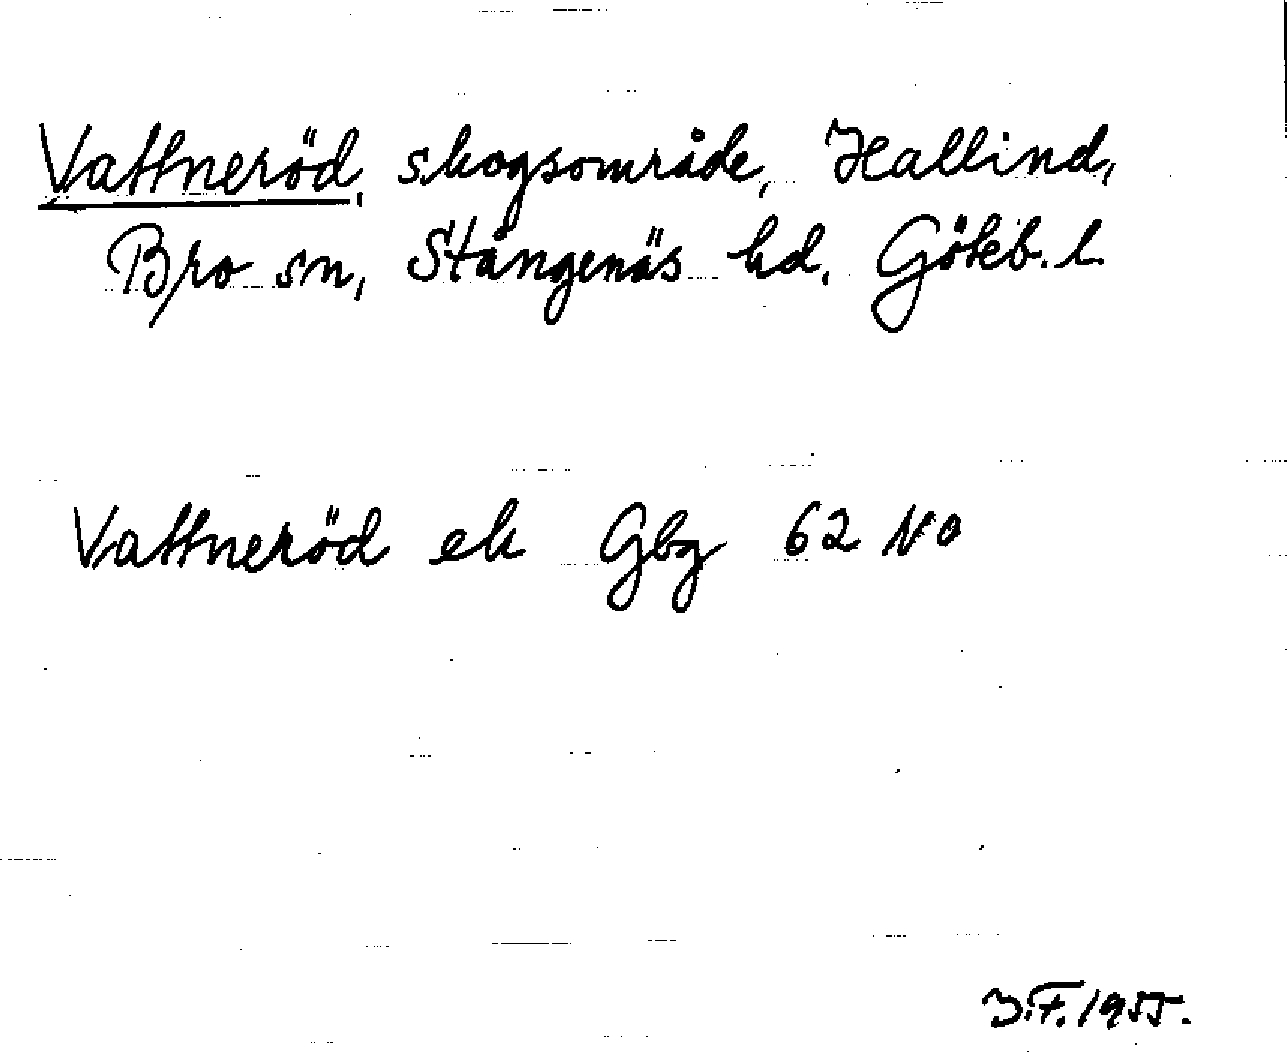 Vattneröd, skogsområde, Hallind,
Bro sn, Stångenäs hd, Göteb. l.
Vattneröd ek Gbg 62 NO
I.F. 1955.